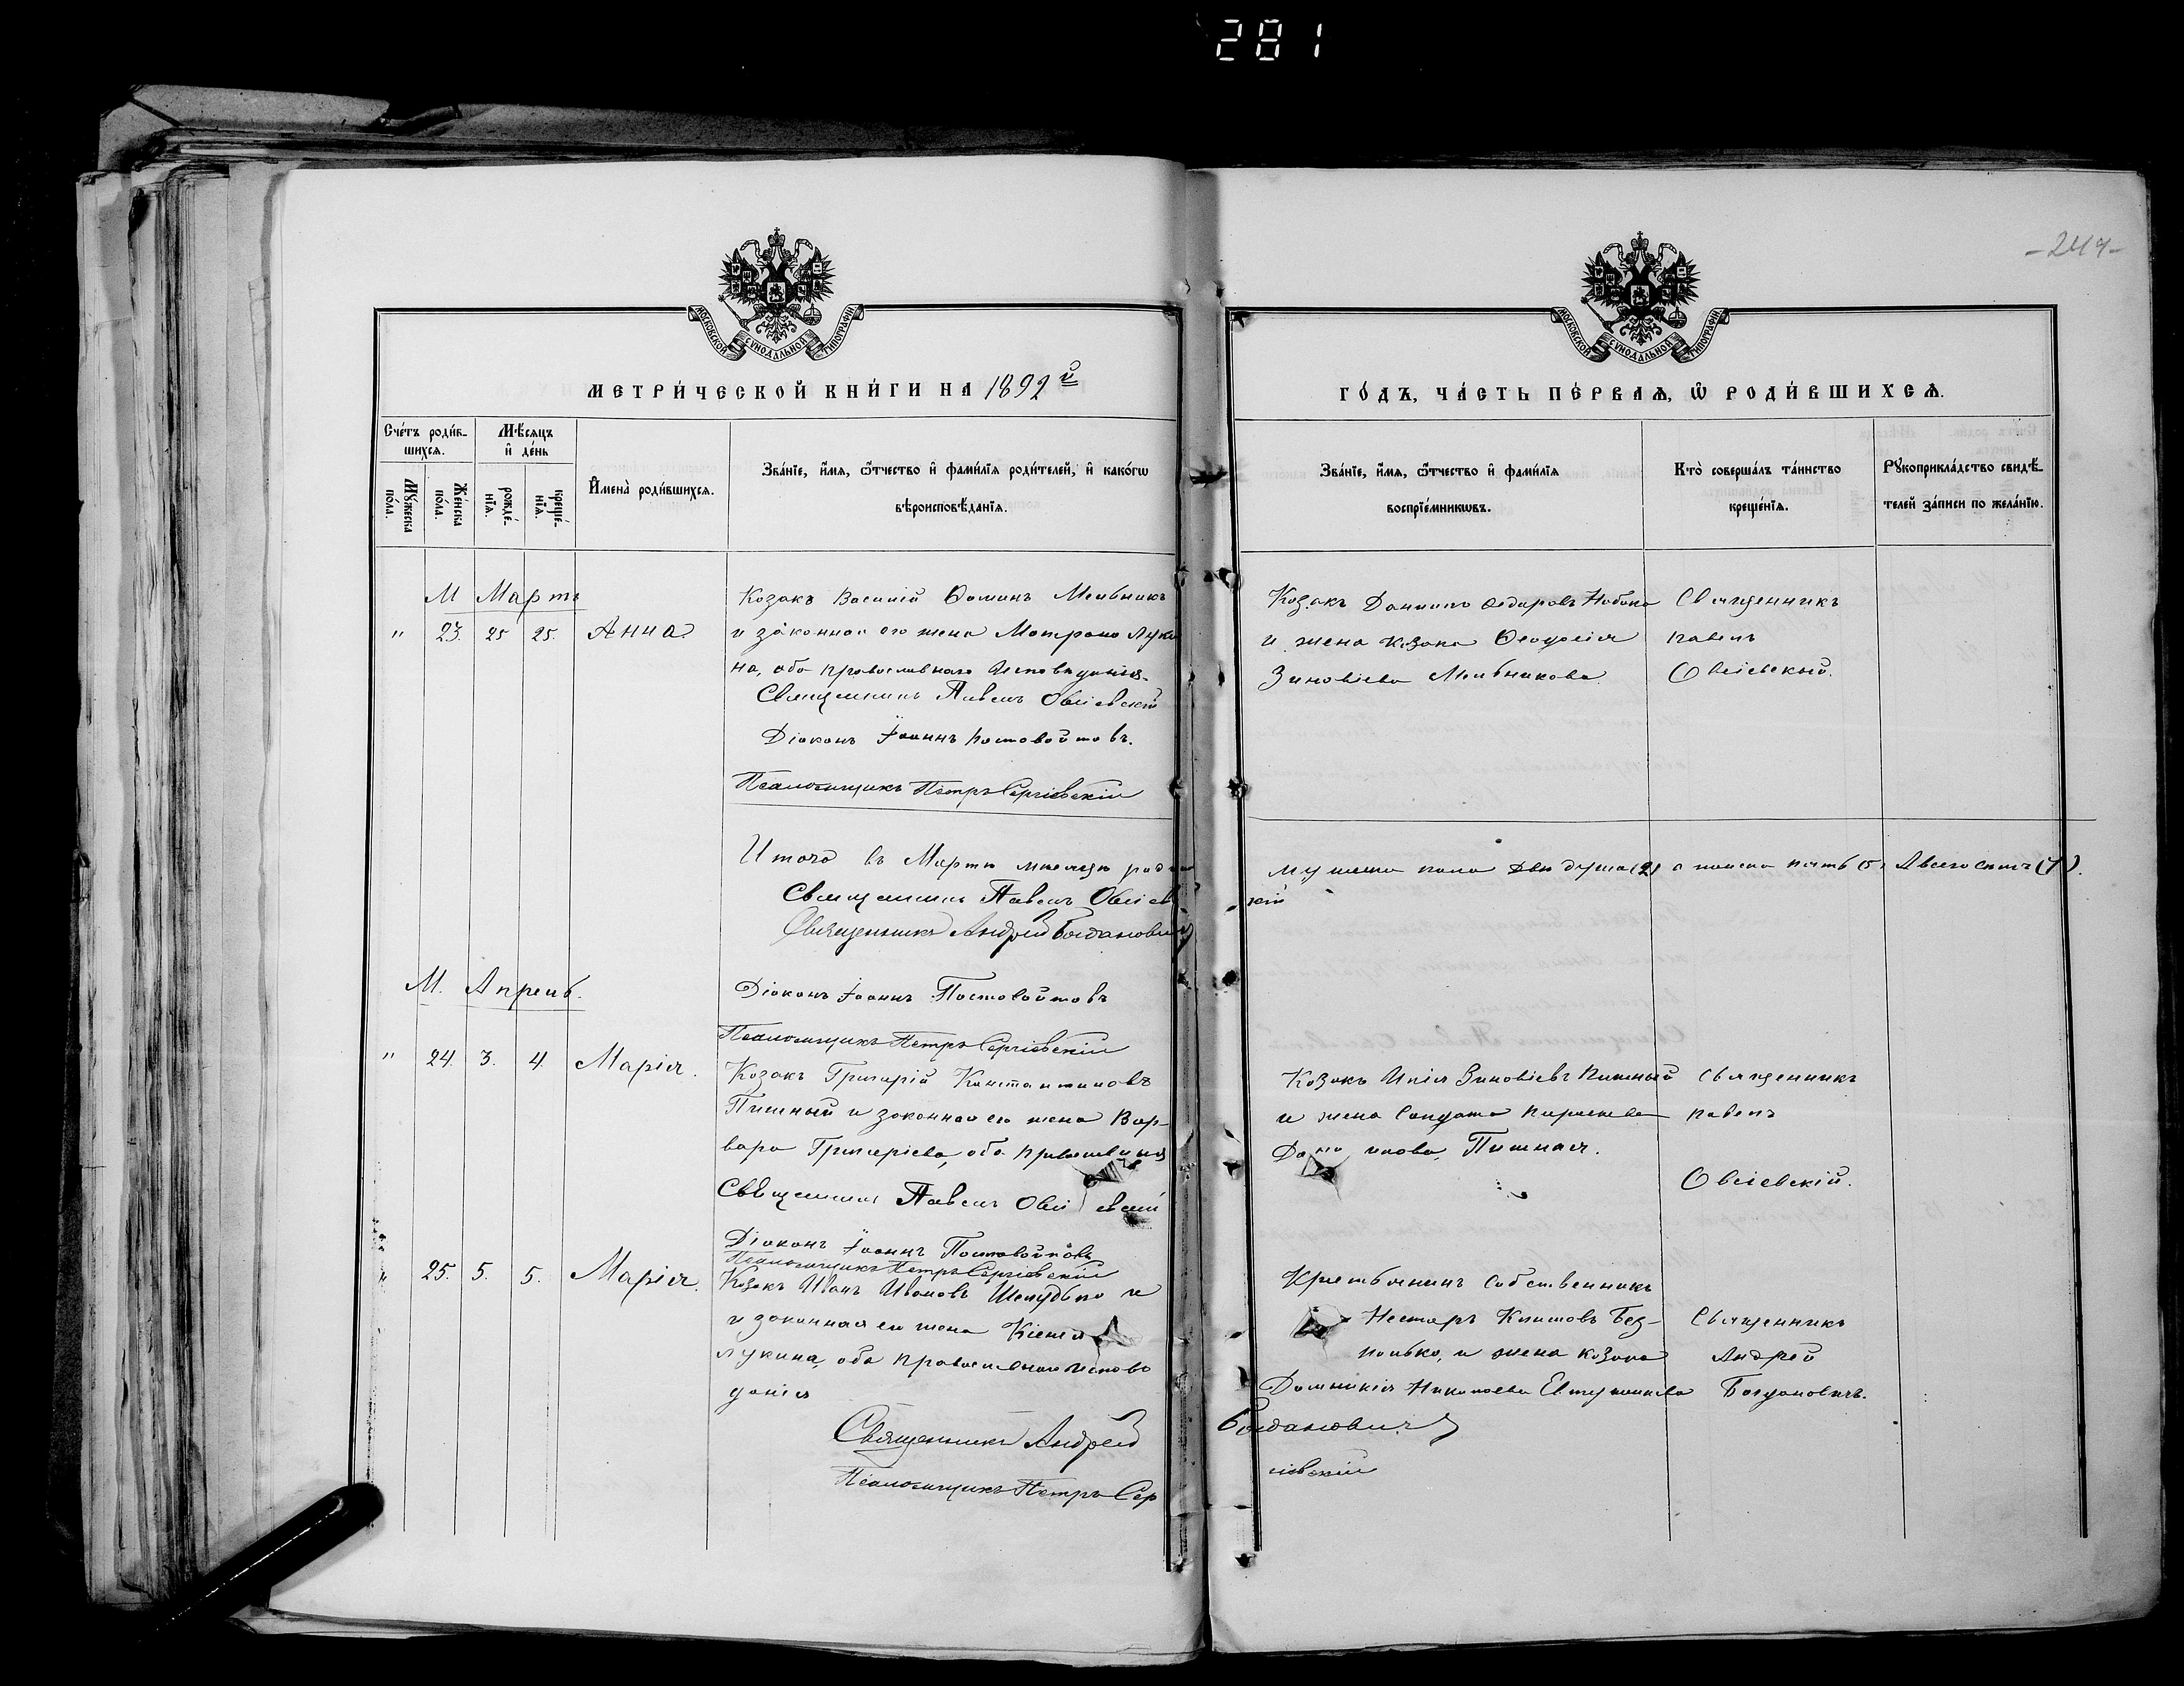 281
-244-
МОСКОВСКОЙ СѴНОДАЛЬНОЙ ТИПОГРАФІИ
МОСКОВСКОЙ СѴНОДАЛЬНОЙ ТИПОГРАФІИ
МЕТРИ́ЧЕСКОЙ КНИ́ГИ НА 1892й
ГО́ДЪ, ЧА́СТЬ ПЕ́РВАѦ, Ѡ҆ РОДИ́ВШИХСѦ.
Сче́тъ роди́в-
шихсѧ.
Мѣ́сѧцъ
и҆ де́нь
Мꙋ́жеска
по́ла.
Же́нска
по́ла.
рожде́-
нїѧ.
креще́-
нїѧ.
И҆мена̀ роди́вшихсѧ.
Зва́нїе, и҆́мѧ, ѻ҆́тчество и҆ фами́лїѧ роди́телей, и҆ како́гѡ
вѣроисповѣ́данїѧ.
Зва́нїе, и҆́мѧ, ѻ҆́тчество и҆ фами́лїѧ
воспрїе́мникѡвъ.
Кто̀ соверша́лъ та́инство
креще́нїѧ.
Рꙋкоприкла́дство свидѣ́-
телей за́писи по жела́нїю.
М Мартъ
" 23. 25 25. Анна
Козакъ Василій Ѳоминъ Мельникъ
и законная его жена Матрона Луки
на, оба православнаго исповѣданія.
Священникъ Павелъ Овсіевскій
Діаконъ Іоаннъ Постовойтовъ.
Псаломщикъ Петръ Сергіевскій
Козакъ Даніилъ Ѳедоровъ
и жена козака Ѳеодосія
Зиновіева Мельникова.
Священникъ
Павелъ
Овсіевскій.
Итого въ Мартѣ мѣсяцѣ роди
мужеска пола двѣ души (2) женска пять (5) А всего семь (7).
Священникъ Павелъ Овсіев
скій
Священникъ Андрей Богдановичъ
М. Апрель.
Діаконъ Іоаннъ Постовойтовъ
Псаломщикъ Петръ Сергіевскій
" 24. 3. 4. Марія.
Козакъ Григорій Константиновъ
Пишный и законная его жена Вар-
вара Григоріева, оба
Священникъ Павелъ Овсіевскій
Діаконъ Іоаннъ Постовойтовъ
Псаломщикъ Петръ Сергіевскій
Козакъ Илія Зиновіевъ Пишный
и жена солдата
Пишная.
Священникъ
Павелъ
Овсіевскій.
" 25. 5. 5. Марія.
Козакъ Иванъ Ивановъ Шелудько и
и законная его жена Ксенія
Лукина, оба православнаго исповѣ
данія
Священникъ Андрей
Богдановичъ
Псаломщикъ Петръ Сер
гіевскій
Крестьянинъ собственникъ
Несторъ Климовъ Без-
палько, и жена козака
Домникія Николаева
Священникъ
Андрей
Богдановичъ.